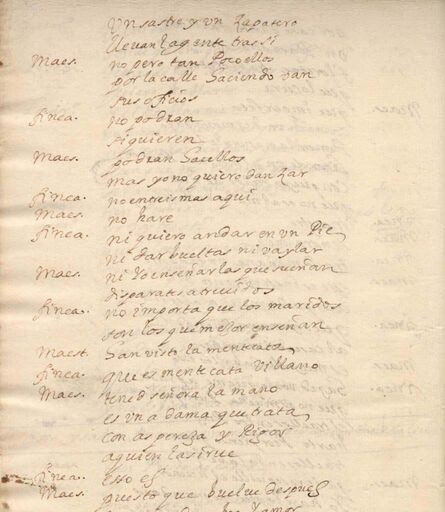 Un sastre y un Zapatero
llevan la gente tras si
Maes. no pero tan Poco ellos
por la calle haciendo van
sus oficios
finea. no podran
si quieren
Maes. podran hacellos
mas yo no quiero danzar
finea. no entreis mas aqui
Maes. no hare
finea. ni quiero andar en un Pie
ni dar bueltas ni vaylar
Maes. ni Yo enseñar las que sueñan
disparates atrevidos
finea. no importa que los maridos
son los que mejor enseñan
Maest. han visto la mentecata
finea. que es mentecata Villano
Maes. tened señora la mano
es una dama que trata
con aspereza y Rigor
a quien la sirve
finea. esso es
Maes. puesto que buelve despues